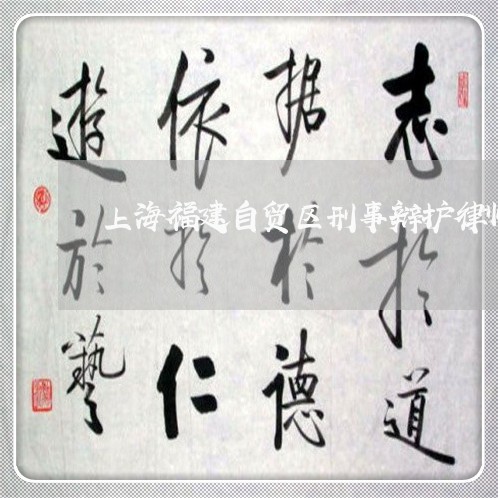 志於道
据於德
依於仁
遊於藝
上海福建自贸区刑事辩护律